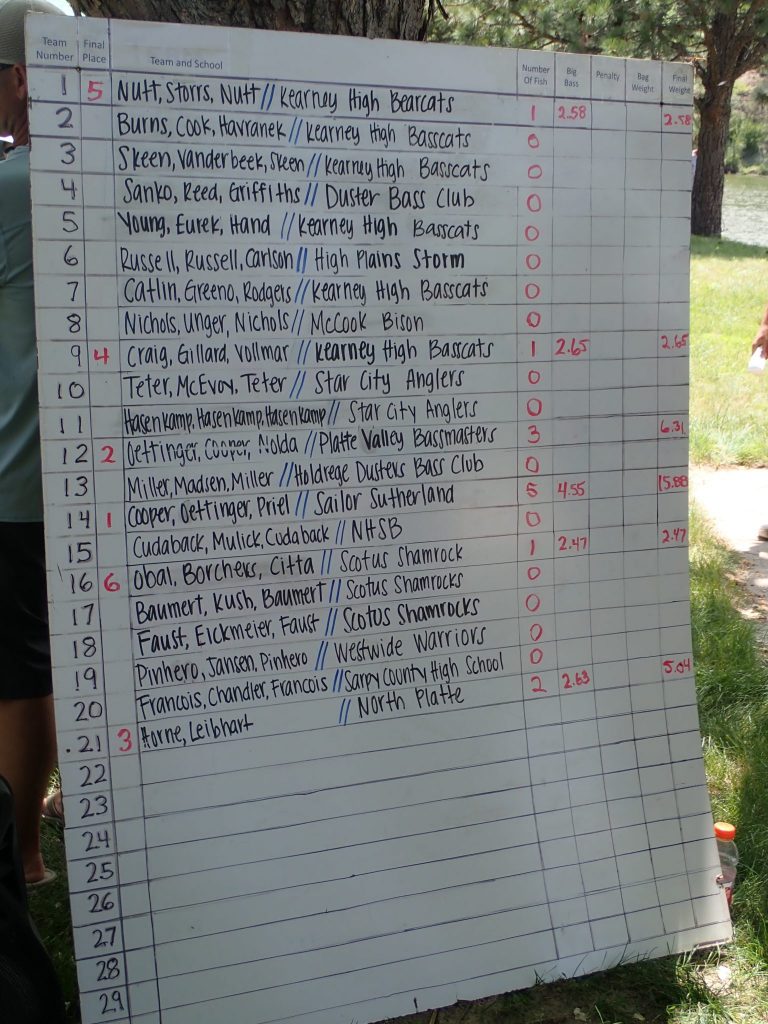 Team Number Final Place Team and School Number Of Fish Big Bass Penalty Bag Weight Final Weight
1 5 Nutt, Storrs, Nutt // Kearney High Bearcats 1 2.58 2.58
2 Burns, Cook, Havranek // Kearney High Basscats 0
3 Skeen, Vanderbeek, Skeen // Kearney High Basscats 0
4 Sanko, Reed, Griffiths // Duster Bass Club 0
5 Young, Eurek, Hand // Kearney High Basscats 0
6 Russell, Russell, Carlson // High Plains Storm 0
7 Catlin, Greeno, Rodgers // Kearney High Basscats 0
8 Nichols, Unger, Nichols // McCook Bison 0
9 4 Craig, Gillard, Vollmar // Kearney High Basscats 1 2.65 2.65
10 Teter, McEvoy, Teter // Star City Anglers 0
11 Hasenkamp, Hasenkamp, Hasenkamp // Star City Anglers 0
12 2 Oettinger, Cooper, Nolda // Platte Valley Bassmasters 3 6.31
13 Miller, Madsen, Miller // Holdrege Dusters Bass Club 0
14 1 Cooper, Oettinger, Priel // Sailor Sutherland 5 4.55 15.88
15 Cudaback, Mulick, Cudaback // NHSB 0
16 6 Obal, Borchers, Citta // Scotus Shamrock 1 2.47 2.47
17 Baumert, Kush, Baumert // Scotus Shamrocks 0
18 Faust, Eickmeier, Faust // Scotus Shamrocks 0
19 Pinhero, Jansen, Pinhero // Westwide Warriors 0
20 Francois, Chandler, Francois // Sarpy County High School 0
21 3 Horne, Leibhart // North Platte 2 2.63 5.04
22
23
24
25
26
27
28
29